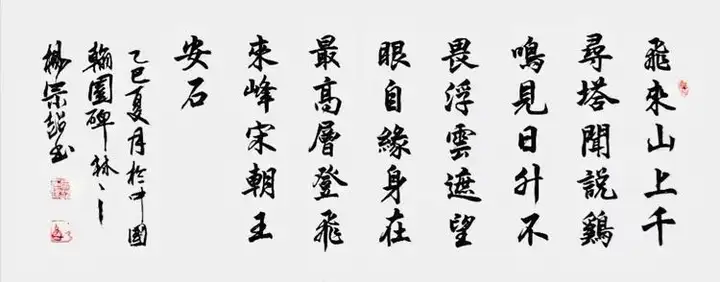 飛來山上千
尋塔聞說鷄
鳴見日升不
畏浮雲遮望
眼自緣身在
最高層登飛
來峰宋朝王
安石
乙巳夏月於中國
翰園碑林
楊